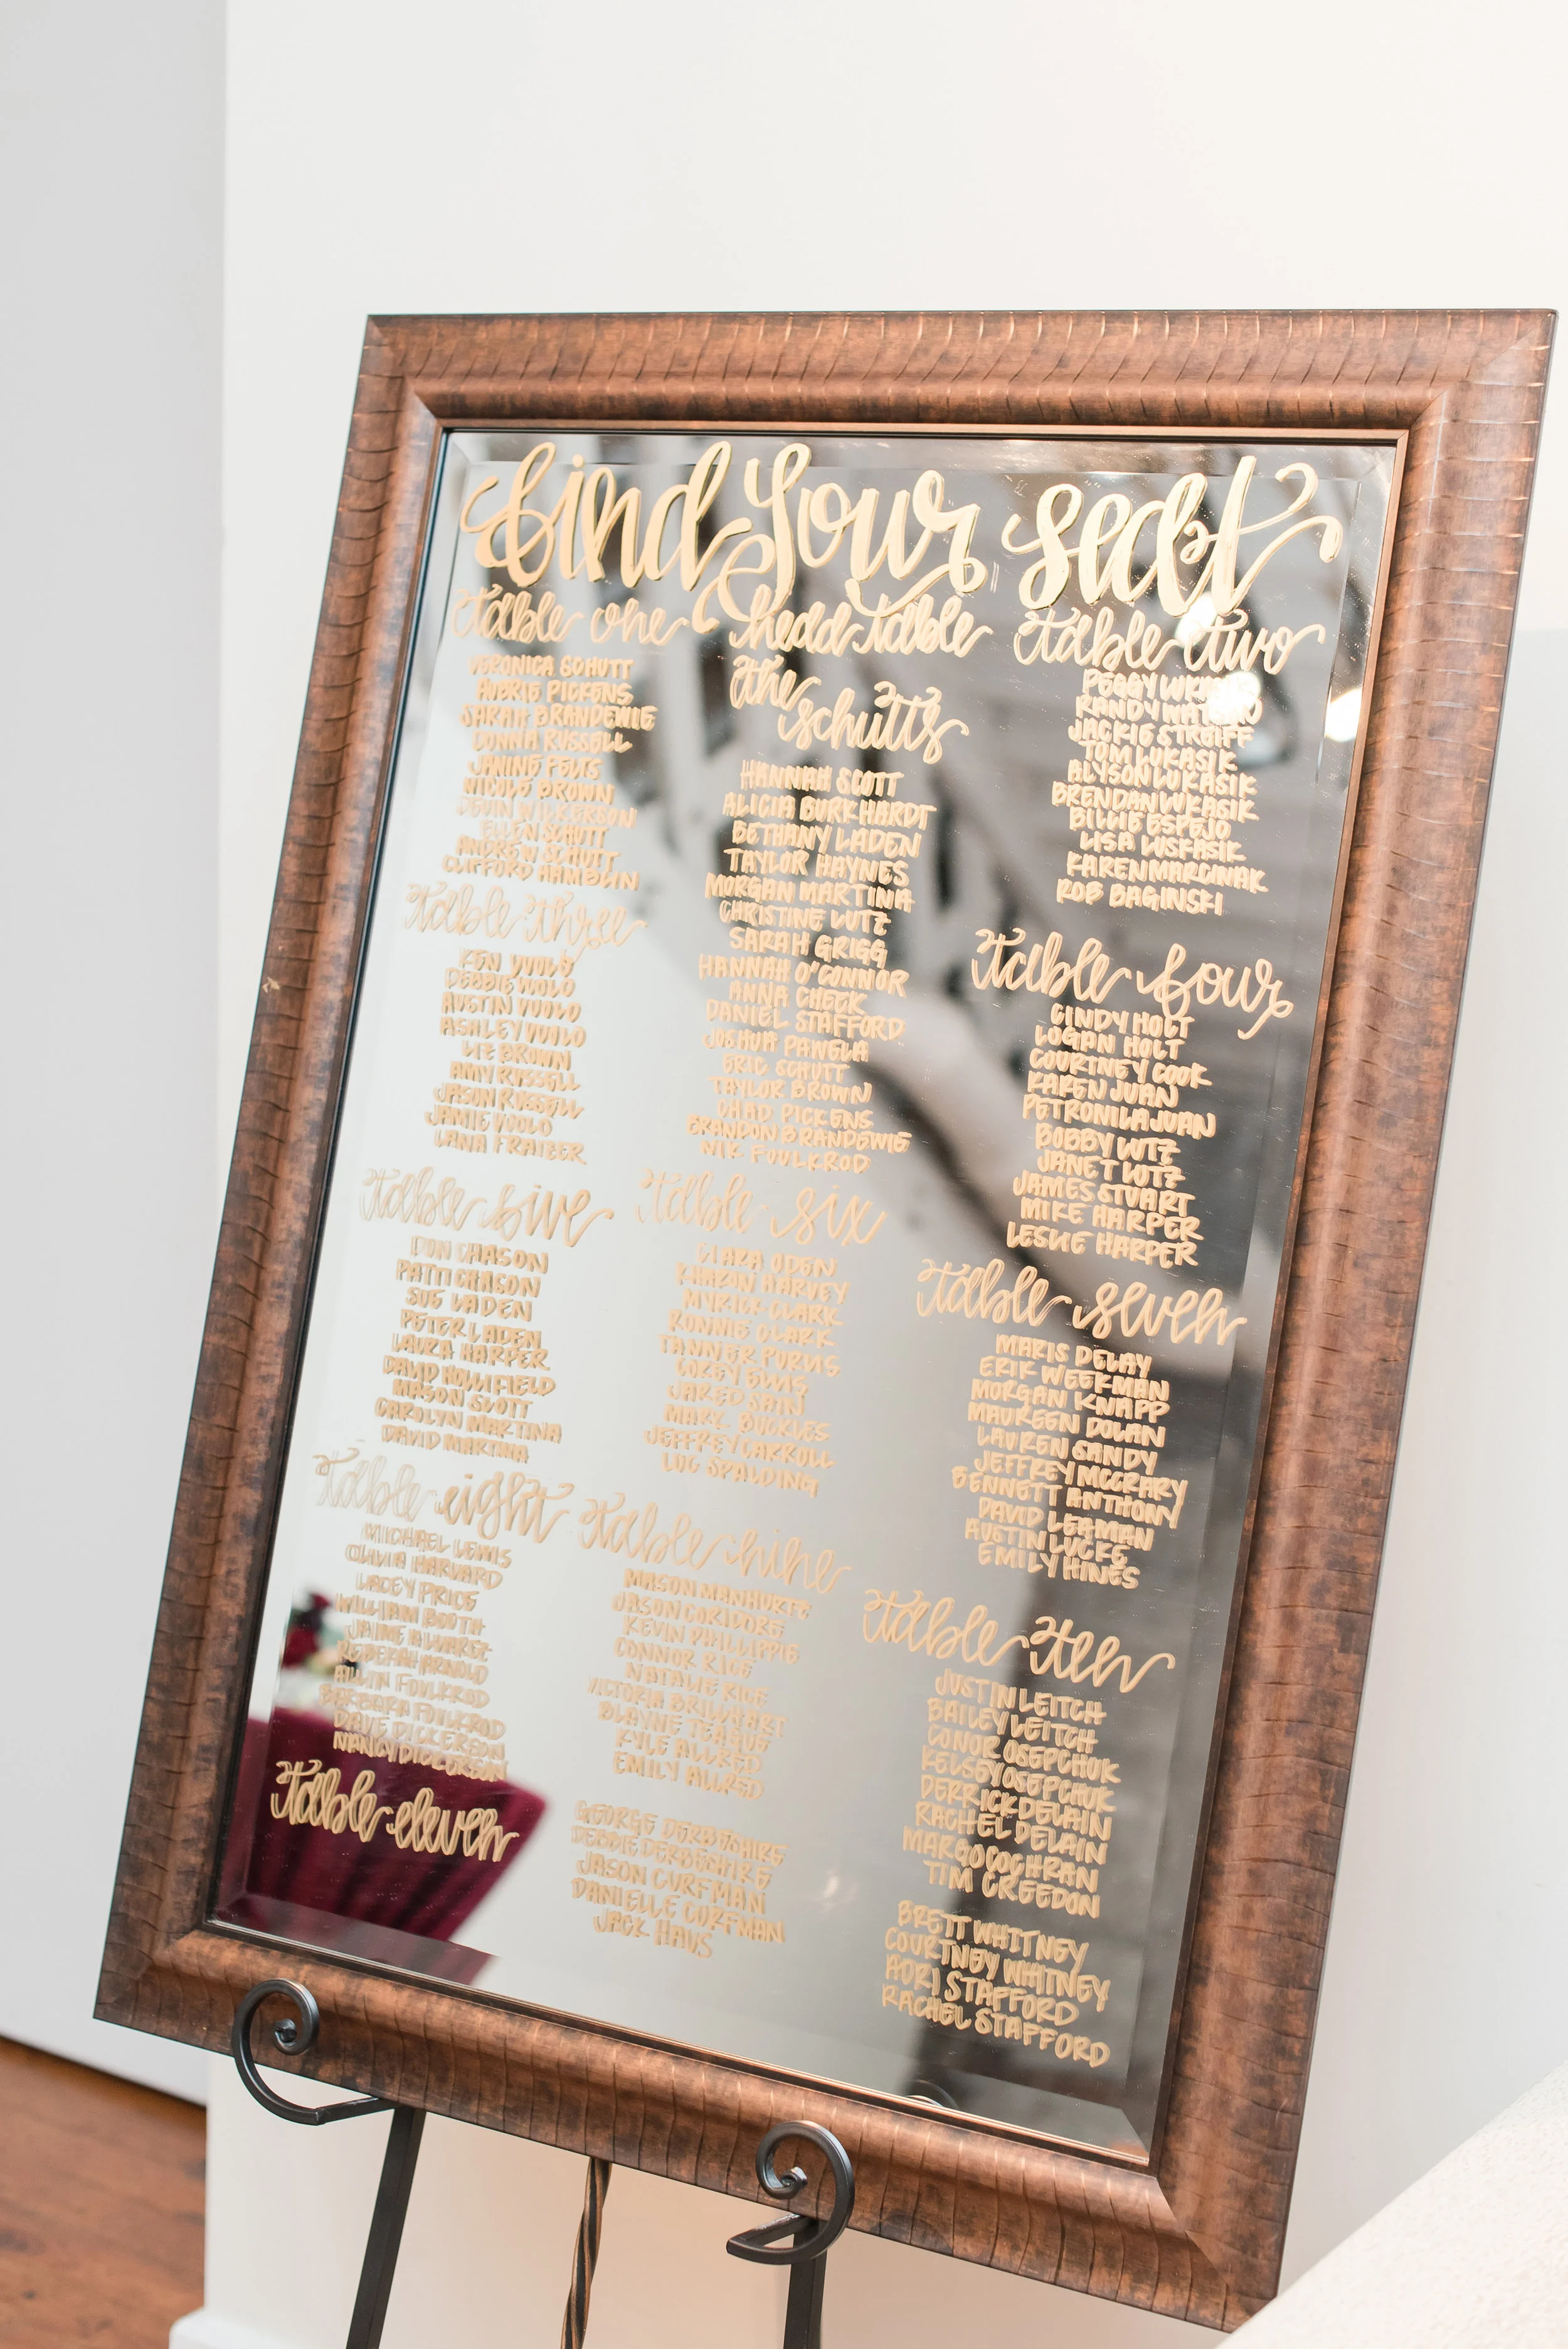 find your seat
table one
VERONICA SCHUTT
AVERIE PICKENS
SARAH BRANDEWIE
DONNA RUSSELL
JANINE PELIS
NICOLE BROWN
DEVIN WILKERSON
ELLEN SCHUTT
ANDREW SCHUTT
CLIFFORD HAMBLIN
head table
the schutts
HANNAH SCOTT
ALICIA BURKHARDT
BETHANY LADEN
TAYLOR HAYNES
MORGAN MARTINA
CHRISTINE LUTZ
SARAH GRIGG
HANNAH O'CONNOR
ANNA CHECK
DANIEL STAFFORD
JOSHUA PANGLA
ERIC SCHUTT
TAYLOR BROWN
CHAD PICKENS
BRANDON BRANDEWIE
NIK FOULKROD
table two
PEGGY
RANDY
JACKIE STROIFF
TOM LUKASIK
ALYSON LUKASIK
BRENDAN LUKASIK
BILLIE ESPEJO
LISA LUSKASIK
KAREN MARCINAK
ROB BAGINSKI
table three
KEN VUOLO
DEBBIE VUOLO
AUSTIN VUOLO
ASHLEY VUOLO
LIZ BROWN
AMY RUSSELL
JASON RUSSELL
JAMIE VUOLO
LANA FRAIZER
table four
CINDY HOLT
LOGAN HOLT
COURTNEY COOK
KAREN JUAN
PETRONILA JUAN
BOBBY LUTZ
JANET LUTZ
JAMES STUART
MIKE HARPER
LESLIE HARPER
table five
DON CHASON
PATTI CHASON
SUE LADEN
PETER LADEN
LAURA HARPER
DAVID HOLLIFIELD
MASON SCOTT
CAROLYN MARTINA
DAVID MARTINA
table six
CLARA ODEN
SHARON HARVEY
MYRICK CLARK
RONNIE CLARK
TANNER PURVIS
COREY ELLIS
JARED SAIN
MARK BUCKLES
JEFFREY CARROLL
LUC SPALDING
table seven
MARIS DELAY
ERIK WEEKMAN
MORGAN KNAPP
MAUREEN DOLAN
LAUREN SANDY
JEFFREY MCCRARY
BENNETT ANTHONY
DAVID LEAMAN
AUSTIN LUCKE
EMILY HINES
table eight
MICHAEL LEWIS
OLIVIA HARVARD
LACEY PRICE
WILLIAM BOOTH
JAIME ALVAREZ
REBEKAH ARNOLD
ALLYN FOULKROD
BARBARA FOULKROD
DAVE DICKERSON
NANCY DICKERSON
table nine
MASON MANHURTZ
JASON CORIDORE
KEVIN PHILLIPPIE
CONNOR RICE
NATALIE RICE
VICTORIA BRILLHART
BLAYNE TEAGUE
KYLE ALLRED
EMILY ALLRED
table ten
JUSTIN LEITCH
BAILEY LEITCH
CONOR OSEPCHUK
KELSEY OSEPCHUK
DERRICK DELAIN
RACHEL DELAIN
MARGO COCHRAN
TIM CREEDON
table eleven
GEORGE DERBESHIRE
DEBBIE DERBESHIRE
JASON CORFMAN
DANIELLE CORFMAN
JACK HAUS
BRETT WHITNEY
COURTNEY WHITNEY
ADRI STAFFORD
RACHEL STAFFORD